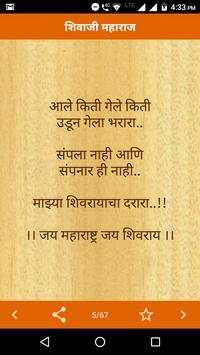 4G LTE 4:33 PM
शिवाजी महाराज
आले किती गेले किती
उडून गेला भरारा..
संपला नाही आणि
संपनार ही नाही..
माझ्या शिवरायाचा दरारा..!!
।। जय महाराष्ट्र जय शिवराय ।।
5/67